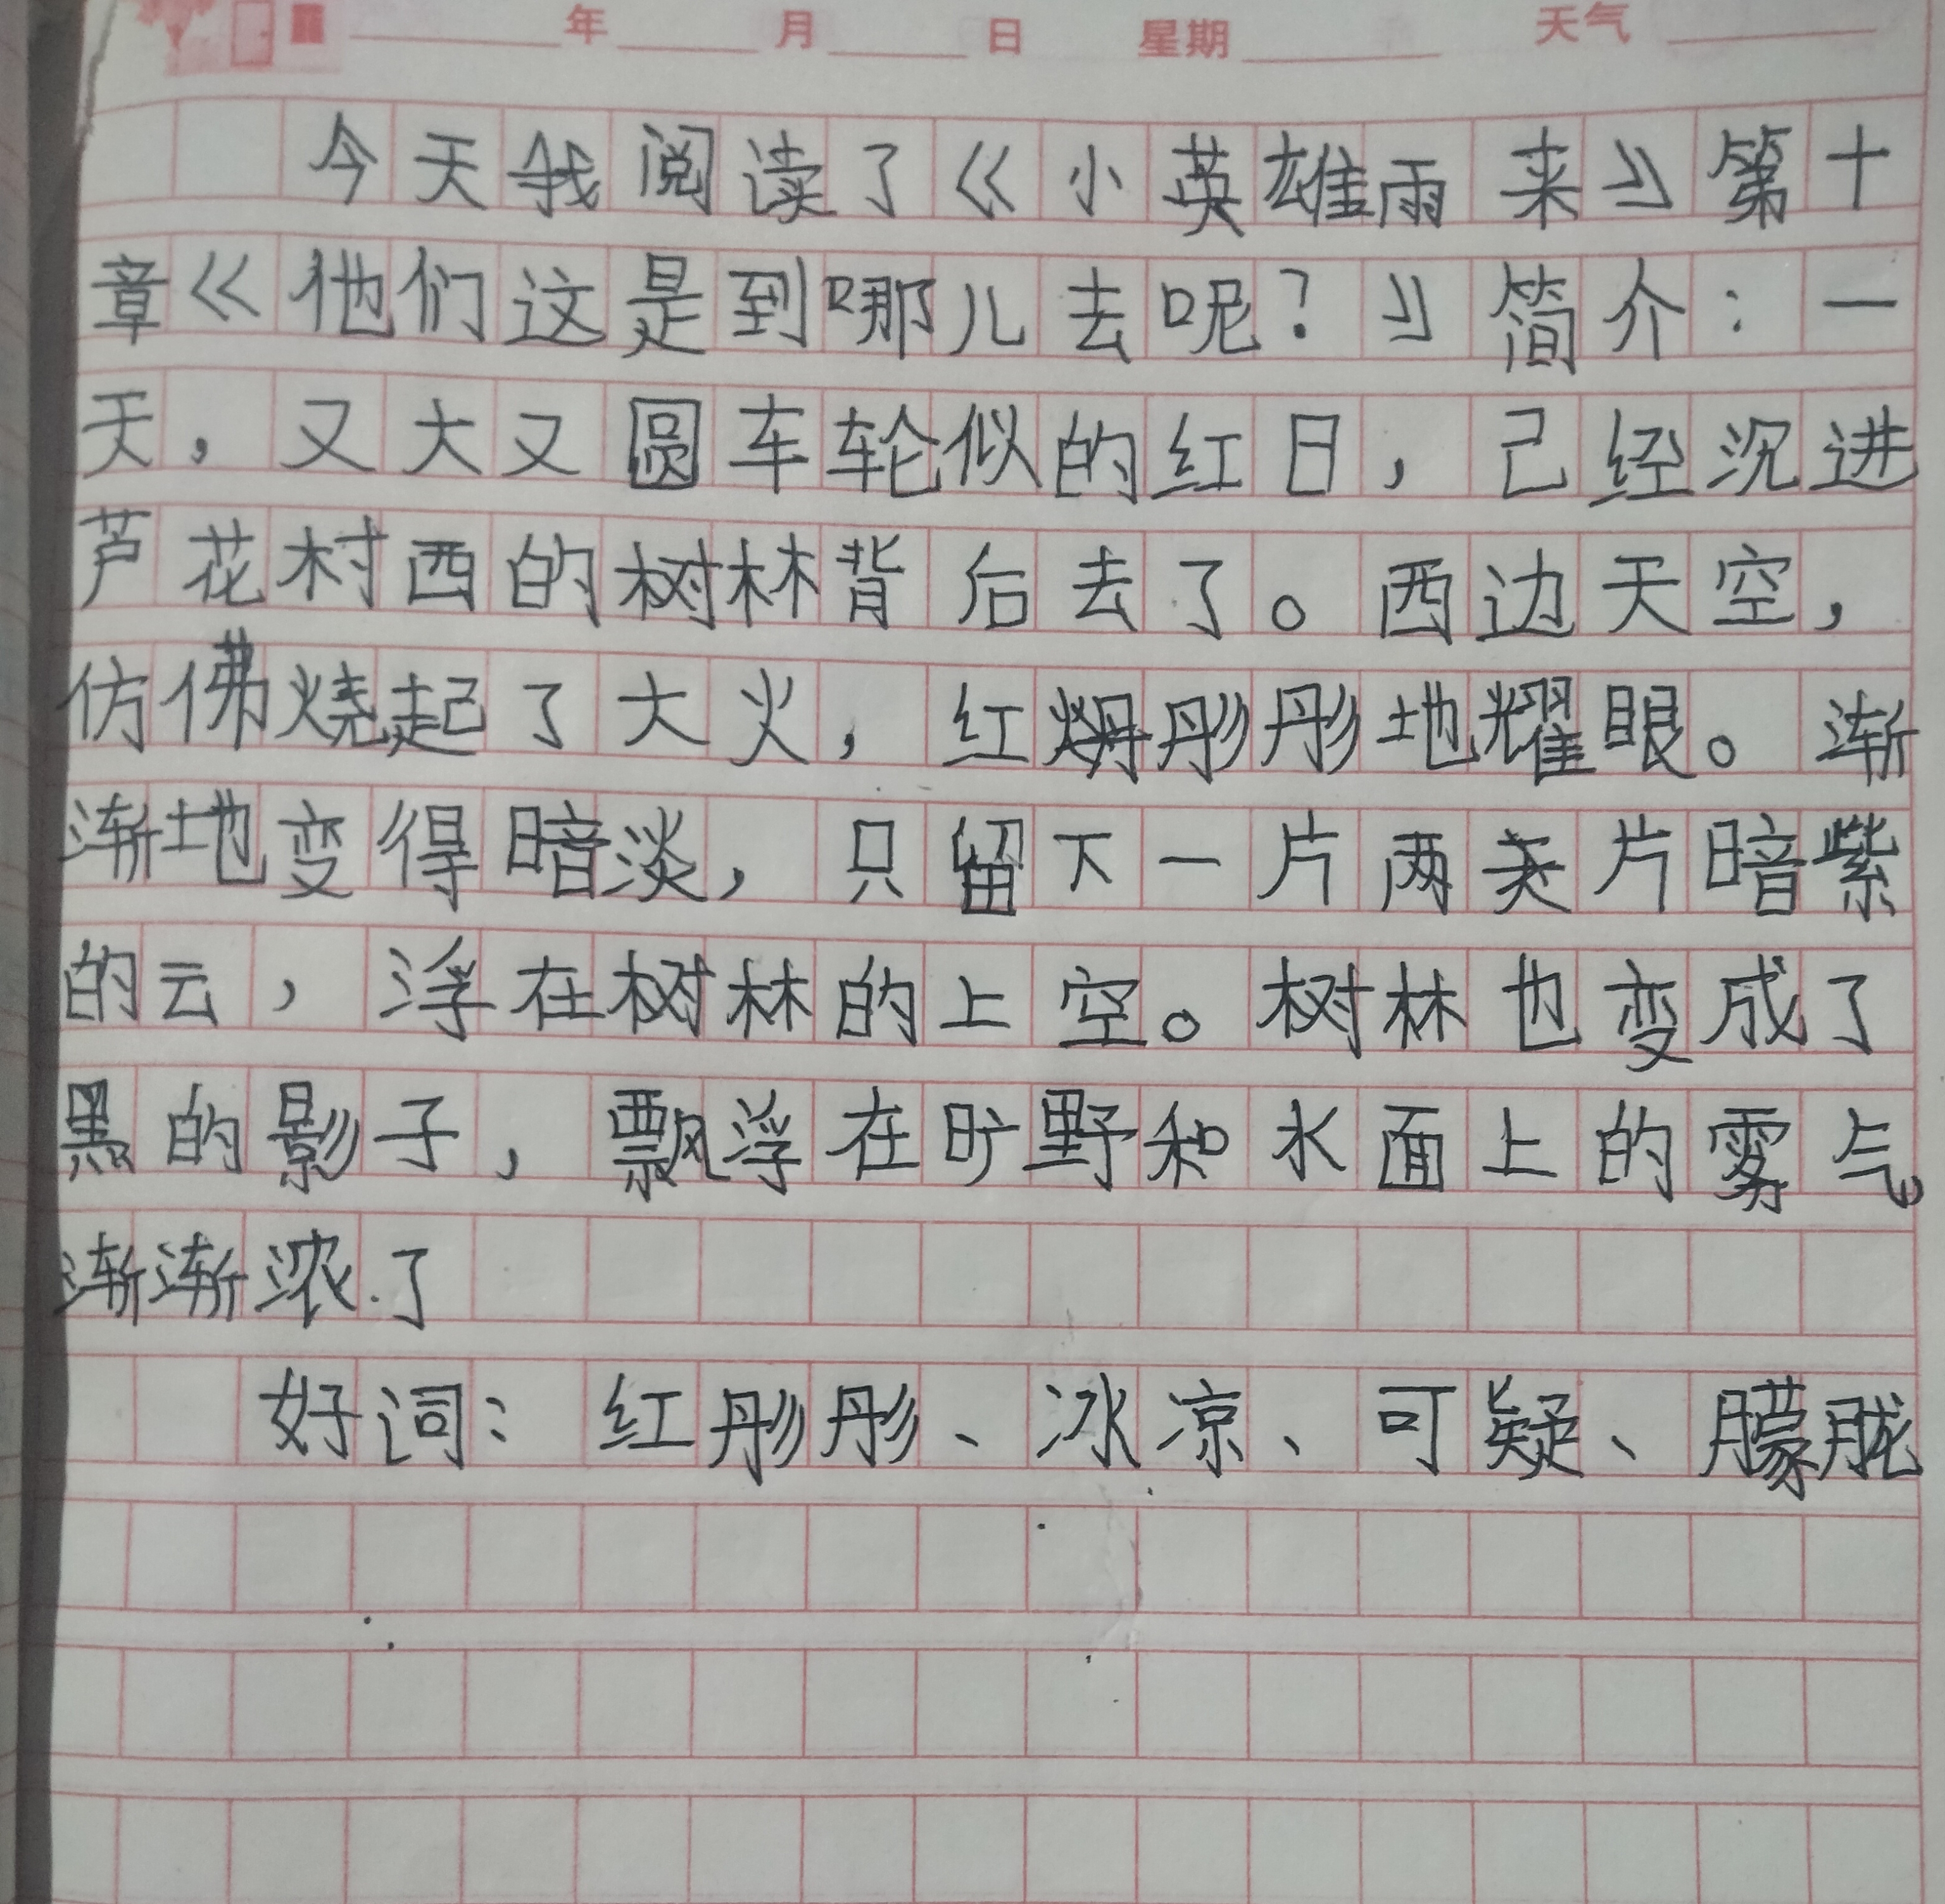 年 月 日 星期 天气
今天我阅读了《小英雄雨来》第十
章《他们这是到哪儿去呢？》简介：一
天，又大又圆车轮似的红日，己经沉进
芦花村西的树林背后去了。西边天空，
仿佛烧起了大火，红彤彤地耀眼。渐
渐地变得暗淡，只留下一片两片暗紫
的云，浮在树林的上空。树林也变成了
黑的影子，飘浮在旷野和水面上的雾气，
渐渐浓了
好词：红彤彤、冰凉、可疑、朦胧